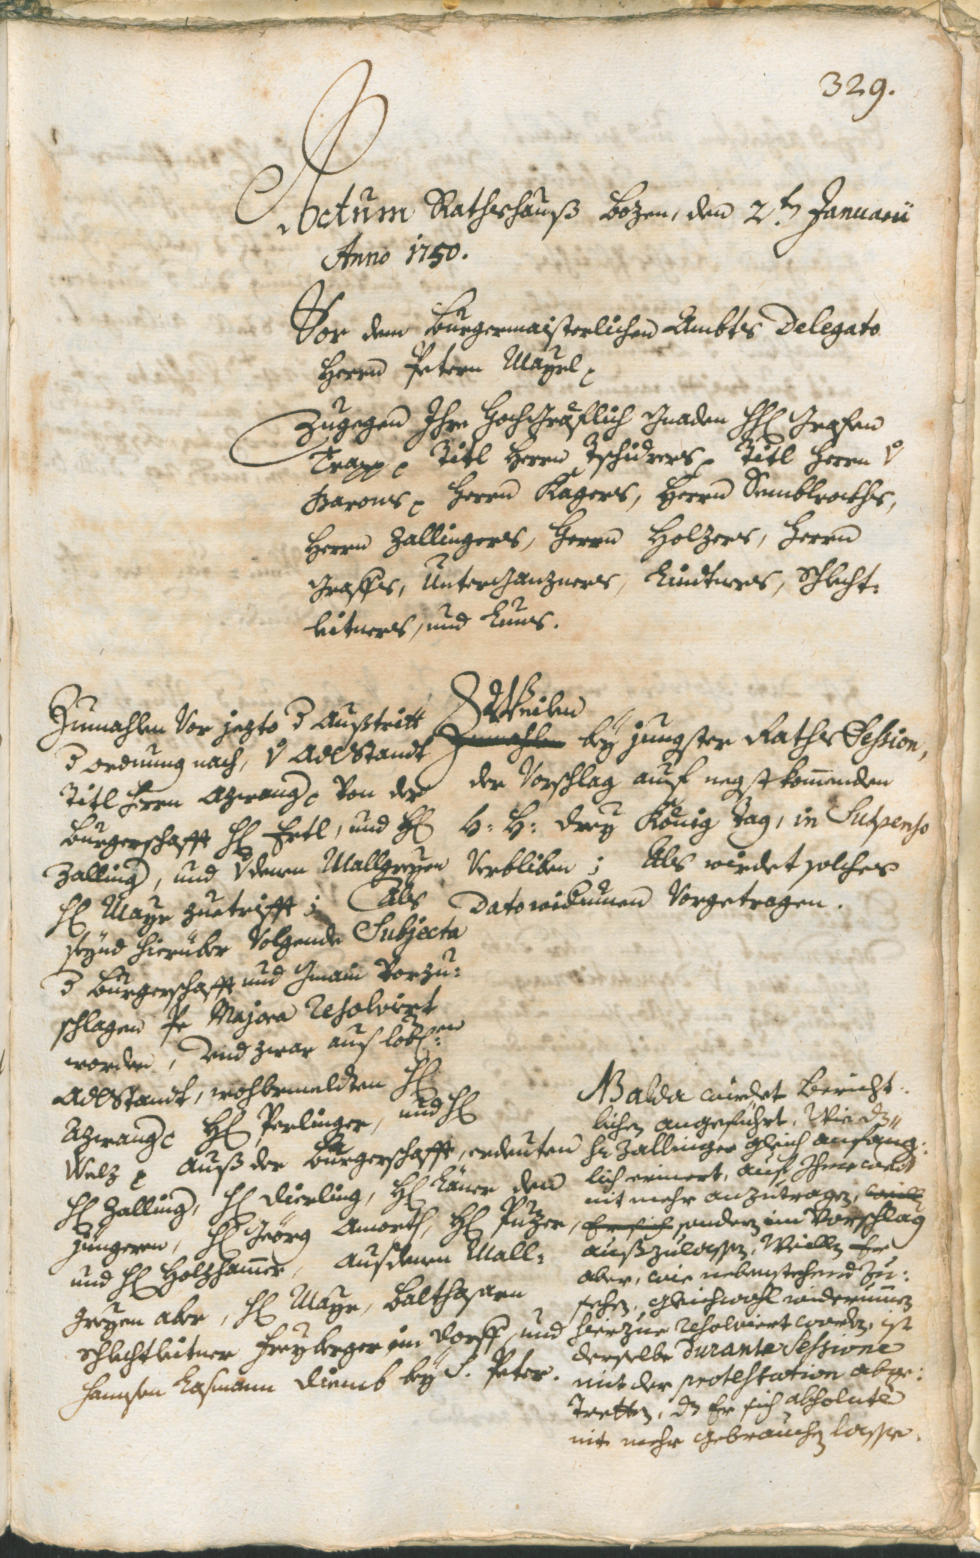 329.
Actum Rathshauß Bozen, den 2.tn Januarii
Anno 1750.
Vor dem Burgermaisterlichen Ambts Delegato
Herrn Petern Mayrl
Zugegen Ihro Hochgräflich Gnaden HH Grafen
Trapp Titl Herrn Tschidrers Titl Herrn v
Barons Herrn Kagers, Herrn Semblrochs,
Herrn Zallingers, Herrn Holzers, Herrn
Graffs, Unterganzners, Lindtners, Schlecht:
leitners, und Luns.
Zumahlen Vor jezto d Außtritt
d ordnung nach, v AdlStandt
Titl Herrn Azwang Von der
Burgerschafft H Ertl, und H
Zalling, und v denen Mallgreyen
H Mayr zuetrifft; Als
seynd hierüber Volgende Subjecta
d Burgerschafft und Gmain Vorzu:
schlagen Per Majora resolvirt
worden, Und zwar auß lobl:en
AdlStandt, wohlermeldten H
Azwang H Perlinger, und H
Welz Auß der Burgerschafft, erdeuten
H Zalling, H Dierling, H Länn den
jüngern, H Geörg Amorth, H Puzer,
und H Holzhamer, auß denen Mall:
greyen aber, H Mayr, Balthasarn
Schlechtleitner Freyberger im Dorff, und
Hannsen Casmann Dienb bey S. Peter.
Zweilen
Zumahlen bey jungster Raths Session,
der Vorschlag auf negst kommenden
H: H: drey König Tag, in Suspenso
Verbliben; Als wirdet solches
Dato widumen Vorgetragen.
NB alda wirdet bericht:
lichen angeführt, Wie dz
H Zallinger gleich anfang:
lich erinert, auf Ihne and
nit mehr anzutragen,
Er sich sondern im Vorschlag
außzulassen, Weilln Er
aber, wie nebenstehend zu:
sehen, gleichwohl widerumen
hierzue resolviert worden, ist
derselbe durante Sessione
mit der protestation abge:
tretten, dz Er sich absolute
nit mehr gebrauchen lasse.